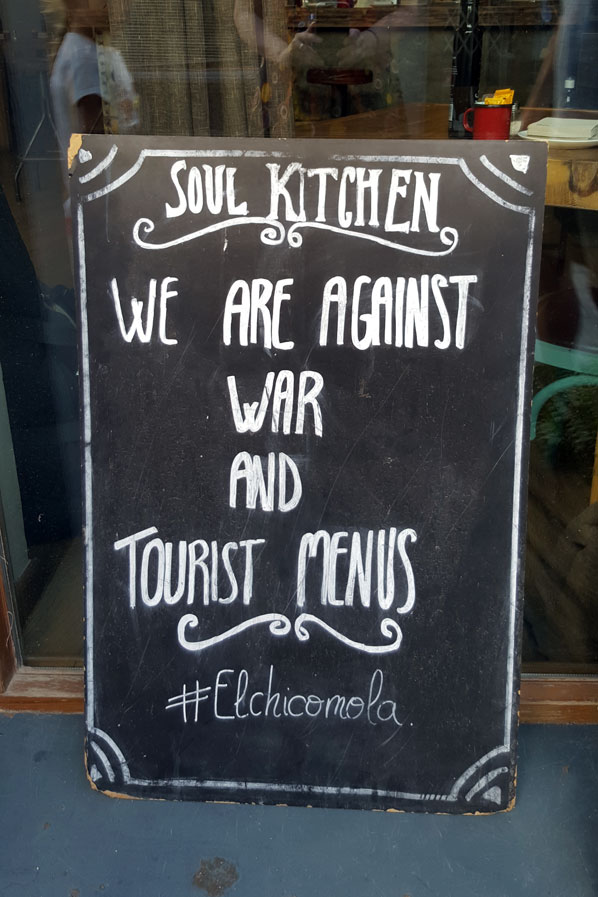 SOUL KITCHEN
WE ARE AGAINST
WAR
AND
TOURIST MENUS
#Elchicomola.